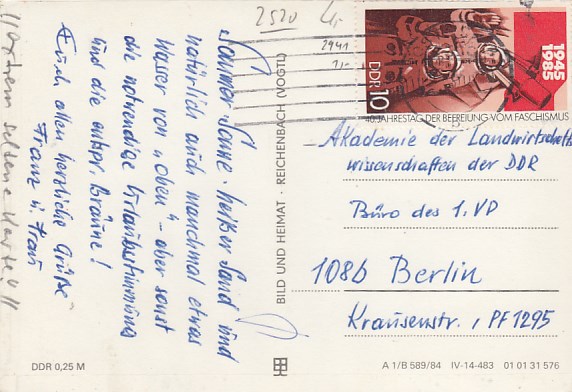 Sommer, Sonne, heißer Sand und
natürlich auch manchmal etwas
Wasser von "Oben" - aber sonst
die notwendige Urlaubsstimmung
und die entspr. Bräune!
Euch allen herzliche Grüße
Franz u. Frau
2520
2941
1,-
DDR 10
1945
1985
40. JAHRESTAG DER BEFREIUNG VOM FASCHISMUS
Akademie der Landwirtschafts
wissenschaften der DDR
Büro des 1. VP
1086 Berlin
Krausenstr., PF 1295
BILD UND HEIMAT · REICHENBACH (VOGTL)
DDR 0,25 M
A 1/B 589/84 IV-14-483 01 01 31 576